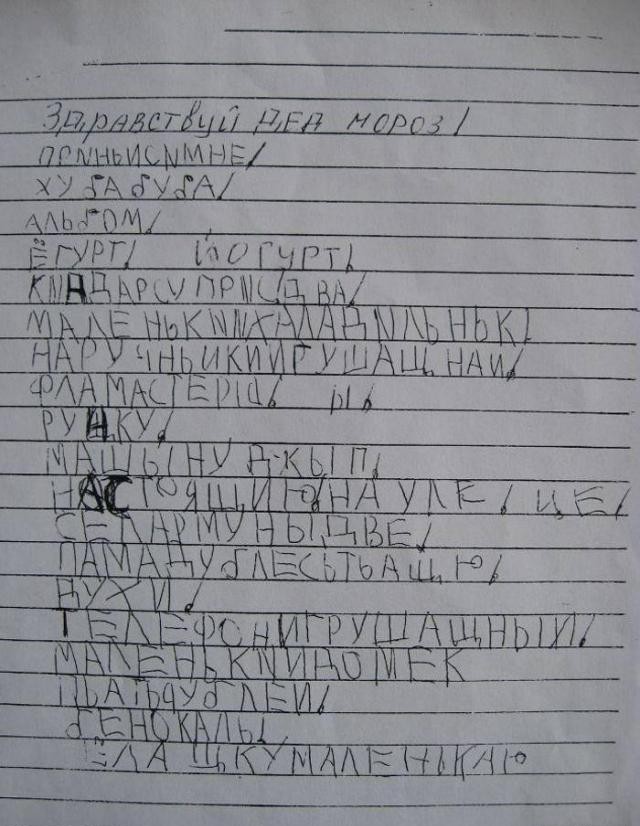 Здравствуй ДЕД МОРОЗ!
ПРИНЬИСИМНЕ!
ХУБАБУБА!
АЛЬБОМ!
ЁГУРТ! ЙОГУРТ!
МАЛЕНЬКИИХАЛАДИЛЬНЬК!
НАРУЧНЬИКИИГРУШАЩНАИ!
ФЛАМАСТЕРІЦ! РІ!
РУЧКУ!
МАШЫНУ ДЖЫП!
НАСТОЯЩИЮ!НА УЛЕ! ЦЕ!
СЕКАРМУНЫДВЕ!
ПАМАДУБЛЕСЬТЬАЩЮ!
ДУХИ!
ТЕЛЕФОНИГРУШАЩНЫЙ!
МАЛЕНЬКИИДОМЕК
ПЬАТЬРУБЛЕЙ!
БЕНОКАЛЬ!
ЁЛАЩКУМАЛЕНЬКАЮ